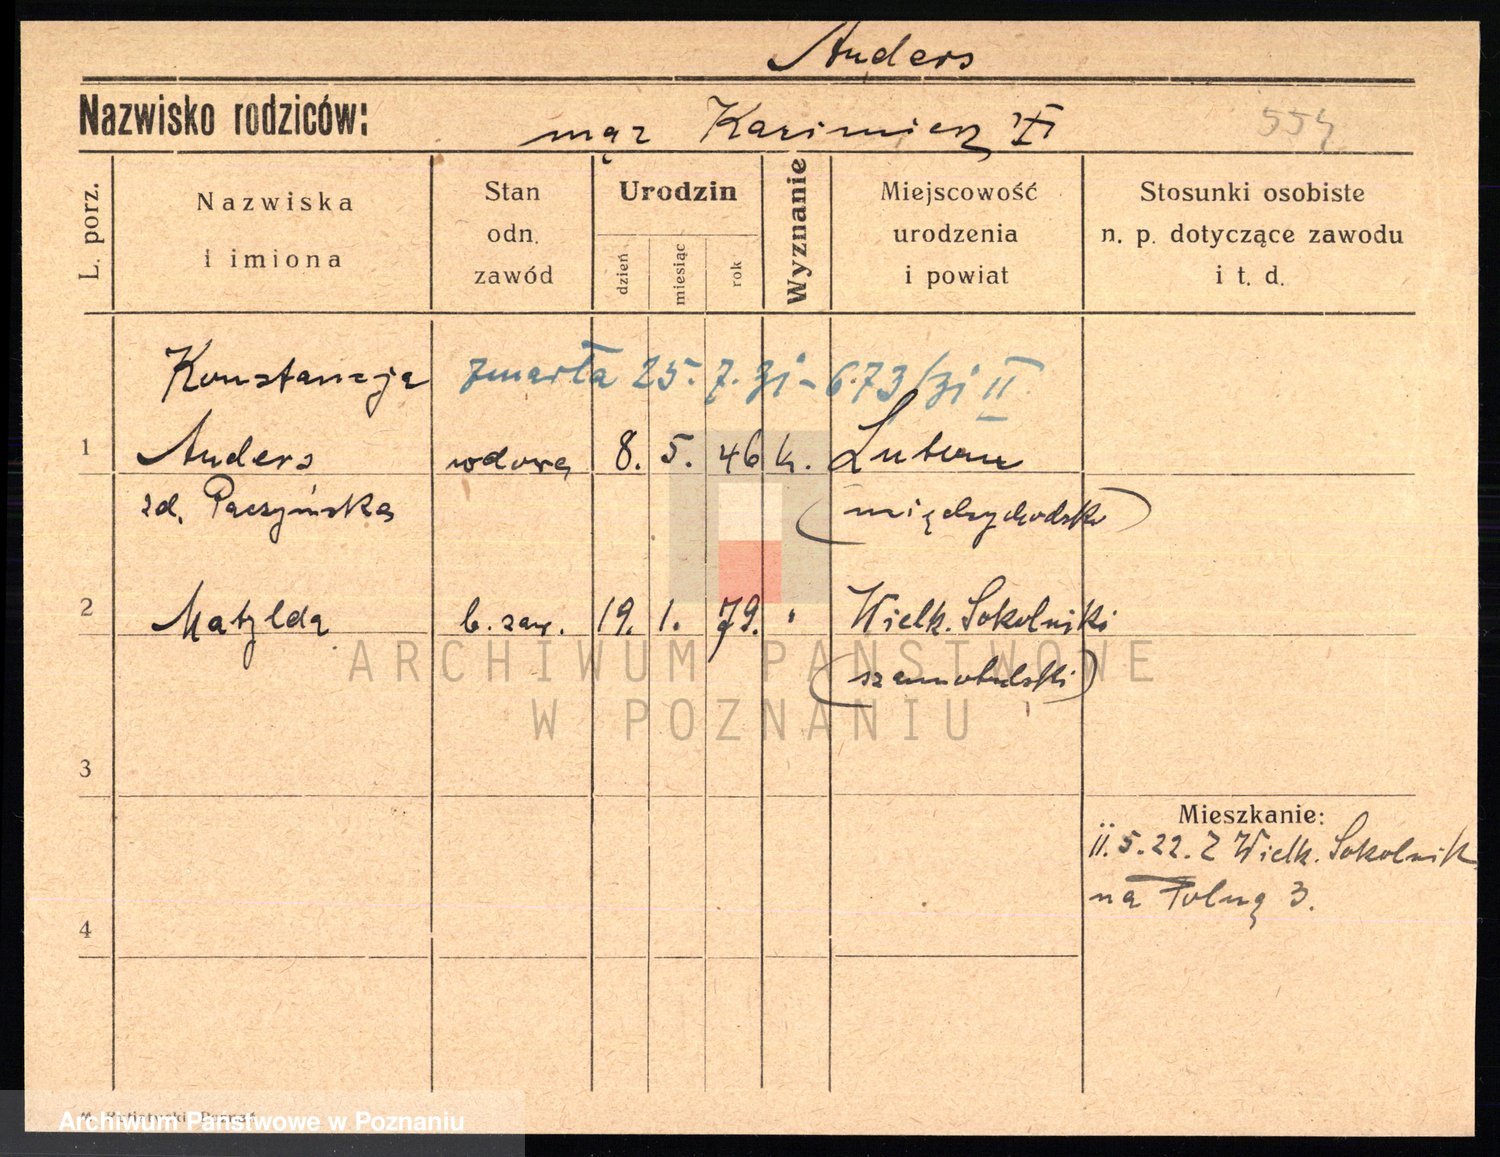 Anders
Nazwisko rodziców:
mąż Kazimierz
554
L. porz.
Nazwiska
i imiona
Stan
odn.
zawód
Urodzin
dzień
miesiąc
rok
Wyznanie
Miejscowość
urodzenia
i powiat
Stosunki osobiste
n. p. dotyczące zawodu
i t. d.
Konstancja zmarła 25. 7. 31 - 673/31 II
1 Anders wdowa 8. 5. 46 k. Luboń
zd. Paczyńska (międzychodzko)
2 Matylda b. zaw. 19. 1. 79. " Wielk. Sokolniki
(szamotulski)
ARCHIWUM PAŃSTWOWE
W POZNANIU
3
Mieszkanie:
11. 5. 22. Z Wielk. Sokolnik
na Polną 3.
4
Archiwum Państwowe w Poznaniu